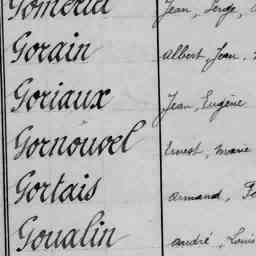 Gomerid Jean, Serge,
Gorain Albert, Jean,
Goriaux Jean, Eugène
Gornouvel Ernest, Marie
Gortais Armand,
Goualin André, Louis